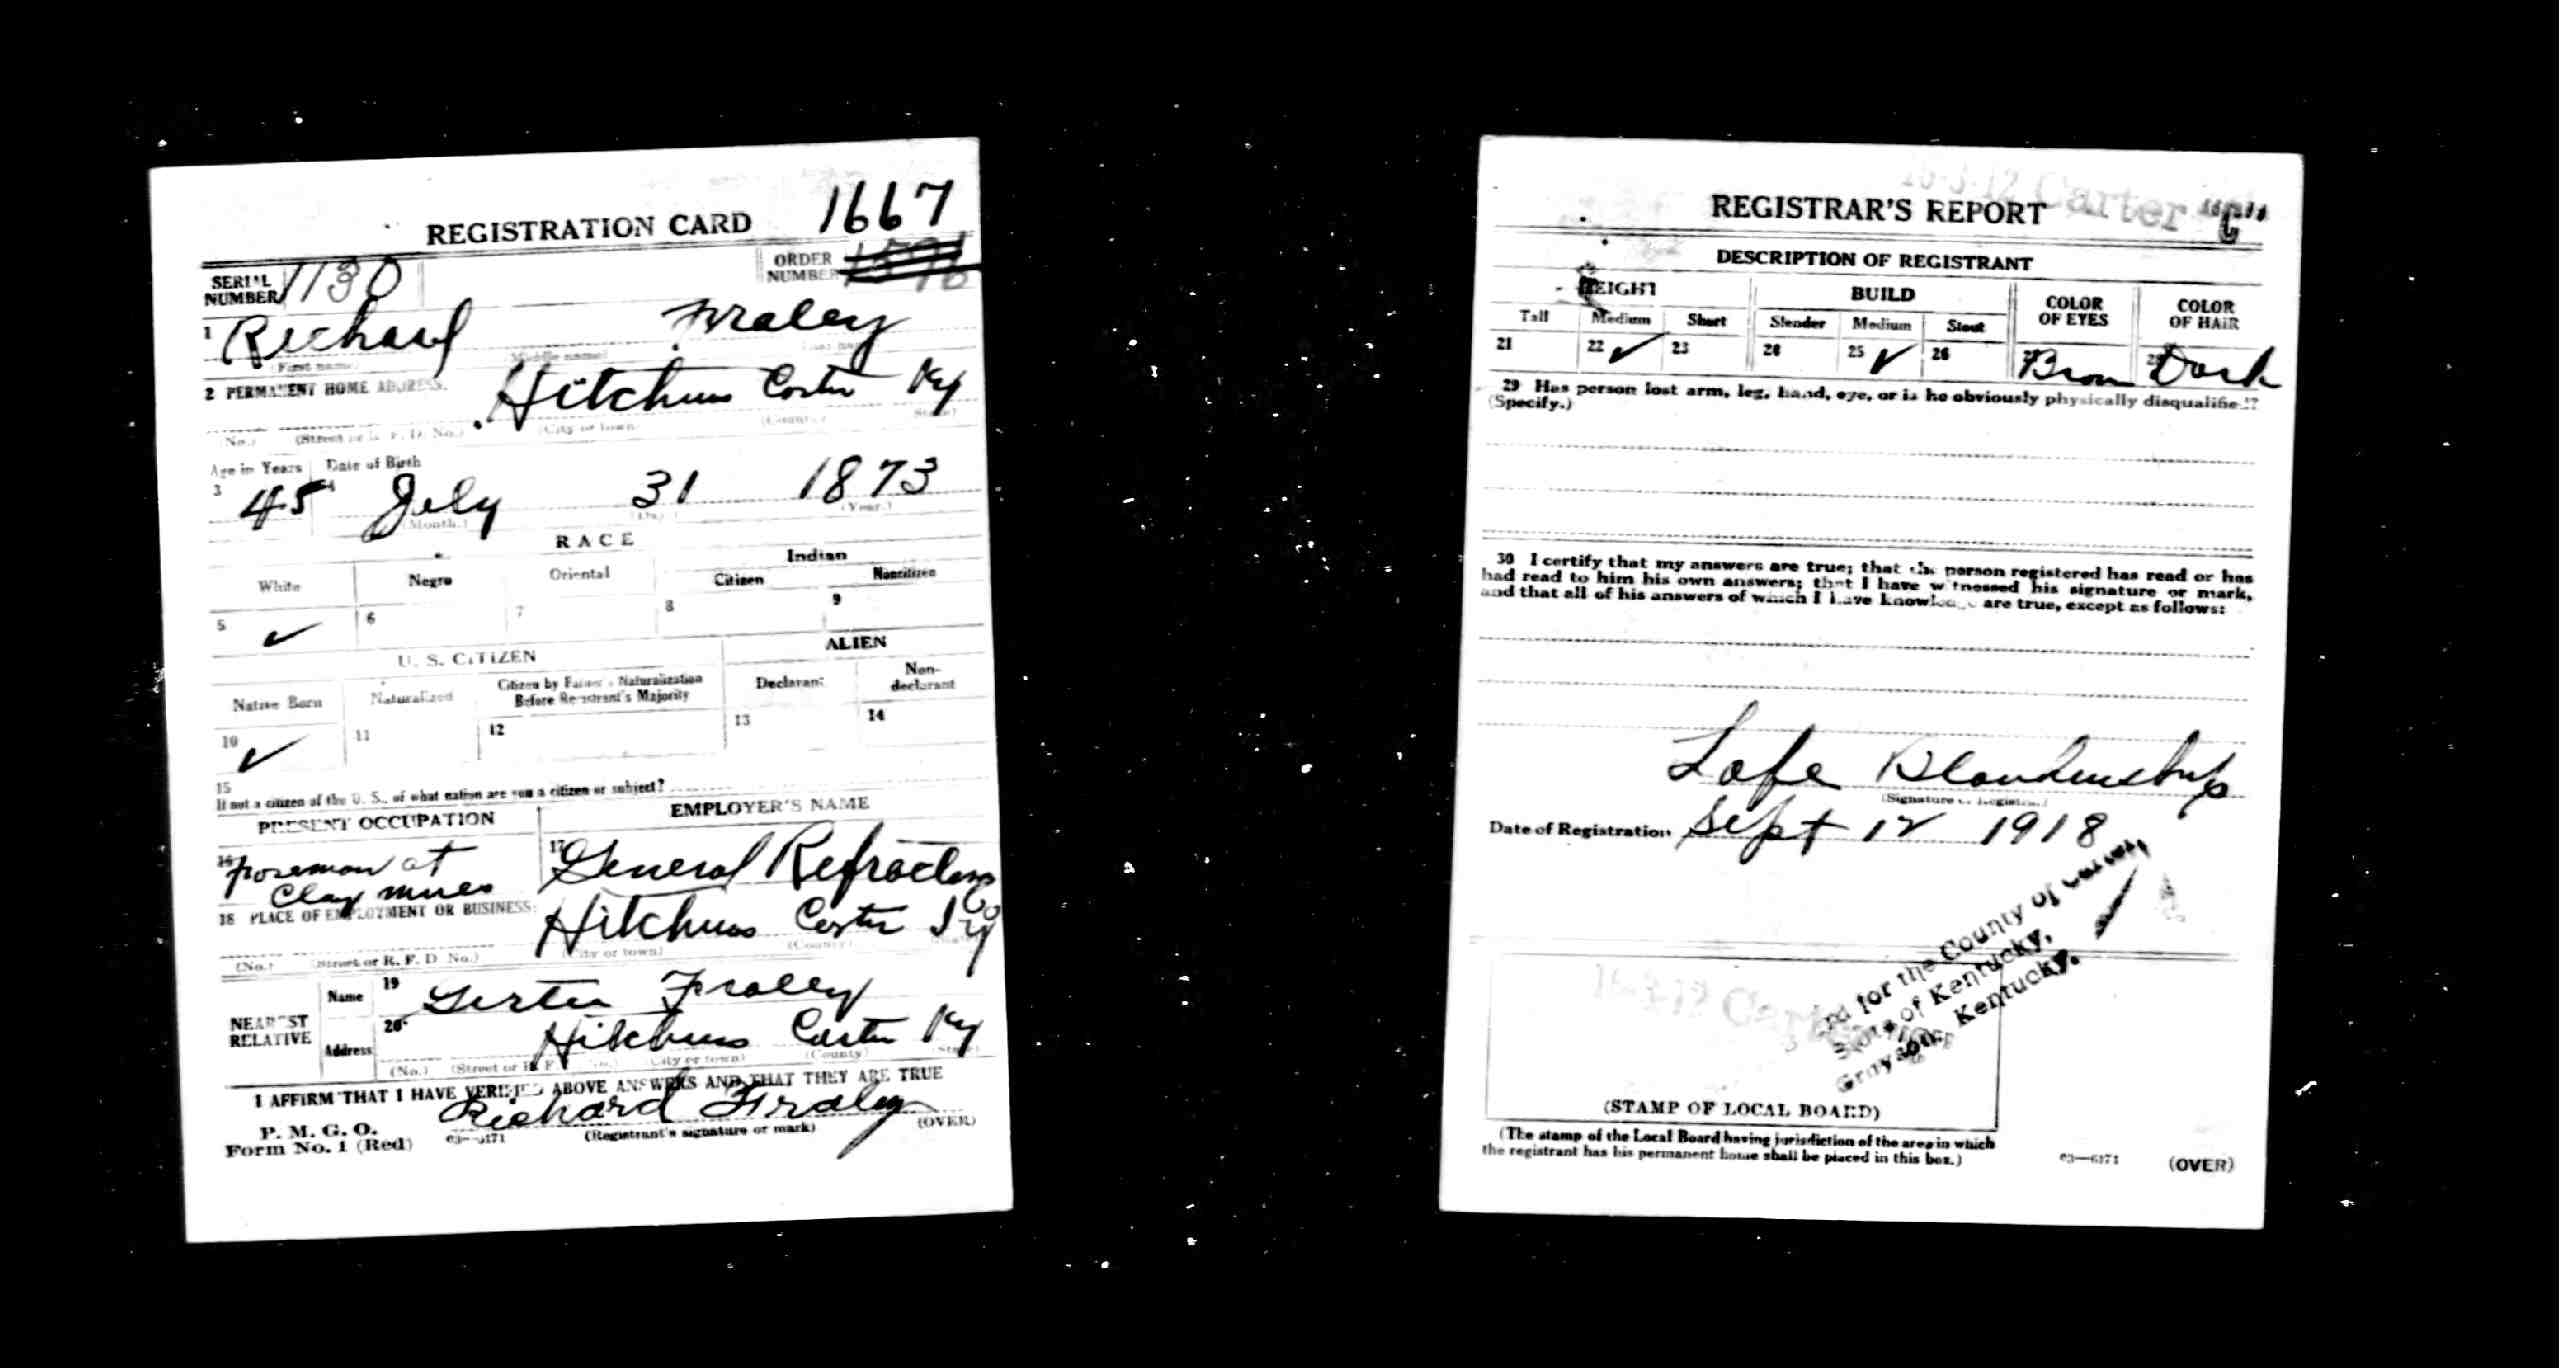 REGISTRATION CARD 1667
SERIAL NUMBER 1130
ORDER NUMBER
1 Richard Fraley
(First name) (Middle name)
2 PERMANENT HOME ADDRESS.
Hitchins Carter Ky
(No.) (Street or R. F. D. No.) (City or town) (County) (State)
Age in Years Date of Birth
3 45 4 July 31 1873
(Month.) (Day.) (Year.)
RACE
White Negro Oriental Indian
Citizen Noncitizen
5 ✓ 6 7 8 9
U. S. CITIZEN ALIEN
Native Born Naturalized Citizen by Father's Naturalization Before Registrant's Majority Declarant Non-declarant
10 ✓ 11 12 13 14
15
If not a citizen of the U. S., of what nation are you a citizen or subject?
PRESENT OCCUPATION EMPLOYER'S NAME
16 foreman at Clay mines
17 General Refractors Co
18 PLACE OF EMPLOYMENT OR BUSINESS:
Hitchins Carter Ky
(No.) (Street or R. F. D. No.) (City or town) (County) (State)
NEAREST RELATIVE
Name 19 Fraley
Address 20 Hitchins Carter Ky
(No.) (Street or R. F. D. No.) (City or town) (County) (State)
I AFFIRM THAT I HAVE VERIFIED ABOVE ANSWERS AND THAT THEY ARE TRUE
Richard Fraley
P. M. G. O.
Form No. 1 (Red) 03—6171 (Registrant's signature or mark) (OVER)
16-3-12 Carter C
REGISTRAR'S REPORT
DESCRIPTION OF REGISTRANT
HEIGHT BUILD COLOR OF EYES COLOR OF HAIR
Tall Medium Short Slender Medium Stout
21 22 ✓ 23 24 25 ✓ 26 27 Brown 28 Dark
29 Has person lost arm, leg, hand, eye, or is he obviously physically disqualified?
(Specify.)
30 I certify that my answers are true; that the person registered has read or has
had read to him his own answers; that I have witnessed his signature or mark,
and that all of his answers of which I have knowledge are true, except as follows:
Lafe Blankenship
(Signature of Registrar)
Date of Registration Sept 12 1918
for the County of Carter,
State of Kentucky,
Grayson, Kentucky.
16-3-12 Carter
(STAMP OF LOCAL BOARD)
(The stamp of the Local Board having jurisdiction of the area in which
the registrant has his permanent home shall be placed in this box.)
03—6171 (OVER)